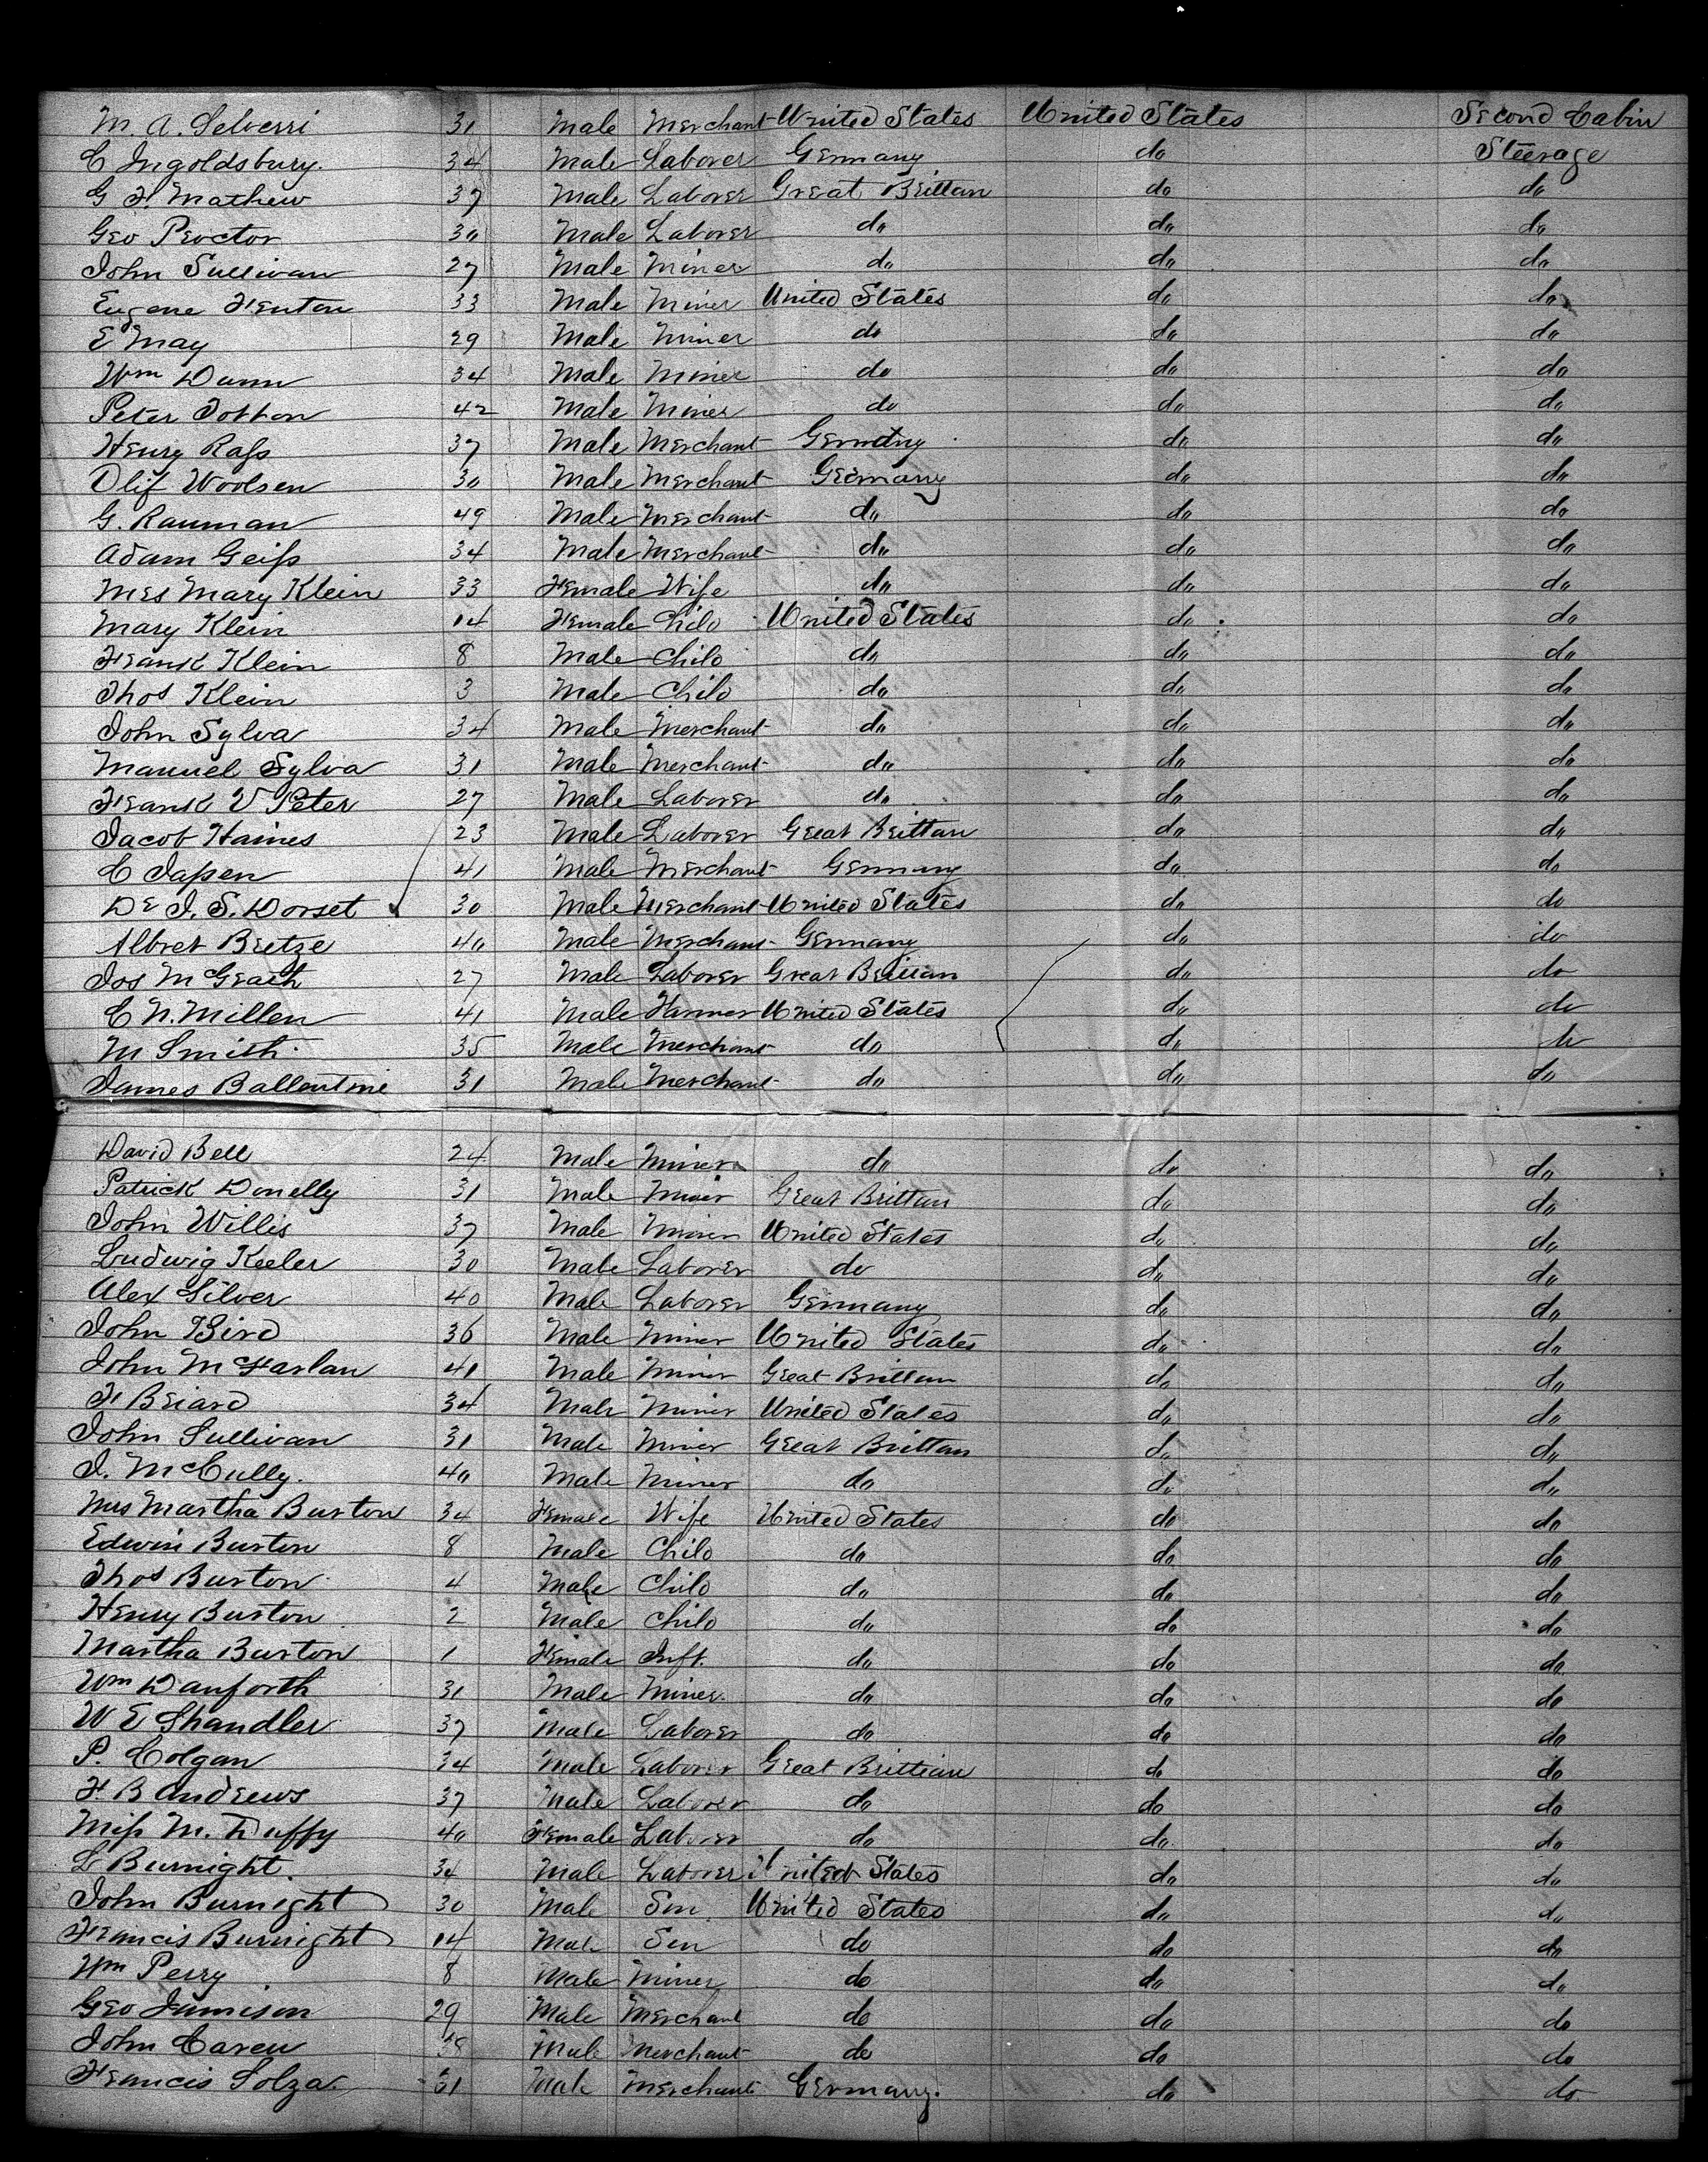 M. A. Selverri 31 Male Merchant United States United States Second Cabin
C Ingoldsbury. 34 Male Laborer Germany do Steerage
G F. Mathew 37 Male Laborer Great Brittan do do
Geo Proctor 30 Male Laborer do do do
John Sullivan 27 Male Miner do do do
Eugene Fenton 33 Male Miner United States do do
E May 29 Male Miner do do do
Wm Dunn 34 Male Miner do do do
Peter Totton 42 Male Miner do do do
Henry Rass 37 Male Merchant Germany do do
Olif Woolsen 30 Male Merchant Germany do do
G. Rauman 49 Male Merchant do do do
Adam Geiss 34 Male Merchant do do do
Mrs Mary Klein 33 Female Wife do do do
Mary Klein 14 Female Child United States do do
Frank Klein 8 Male Child do do do
Thos Klein 3 Male Child do do do
John Sylva 34 Male Merchant do do do
Manuel Sylva 31 Male Merchant do do do
Frank V Peter 27 Male Laborer do do do
Jacob Haines 23 Male Laborer Great Brittan do do
C Jassen 41 Male Merchant Germany do do
Dr J. S. Dorset 30 Male Merchant United States do do
Albret Bretze 40 Male Merchant Germany do do
Jos McGrath 27 Male Laborer Great Brittan do do
C N. Millen 41 Male Farmer United States do do
M Smith 35 Male Merchant do do do
James Ballentine 31 Male Merchant do do do
David Bell 24 Male Miner do do do
Patrick Donelly 31 Male Miner Great Brittan do do
John Willis 37 Male Miner United States do do
Ludwig Keeler 30 Male Laborer do do do
Alex Silver 40 Male Laborer Germany do do
John Bird 36 Male Miner United States do do
John McFarlan 41 Male Miner Great Brittan do do
F Briard 34 Male Miner United States do do
John Sullivan 31 Male Miner Great Brittan do do
J. McCully. 40 Male Miner do do do
Mrs Martha Burton 34 Female Wife United States do do
Edwin Burton 8 Male Child do do do
Thos Burton 4 Male Child do do do
Henry Burton 2 Male Child do do do
Martha Burton 1 Female Inft. do do do
Wm Danforth 31 Male Miner. do do do
W E Shandler 37 Male Laborer do do do
P. Colgan 34 Male Laborer Great Brittian do do
F B Andrews 37 Male Laborer do do do
Miss M. Duffy 40 Female Laborer do do do
L Burnight. 34 Male Laborer United States do do
John Burnight 30 Male Son United States do do
Francis Burnight 14 Male Son do do do
Wm Perry 8 Male Miner do do do
Geo Jamison 29 Male Merchant do do do
John Caren 38 Male Merchant do do do
Francis Solza. 31 Male Merchant Germany. do do